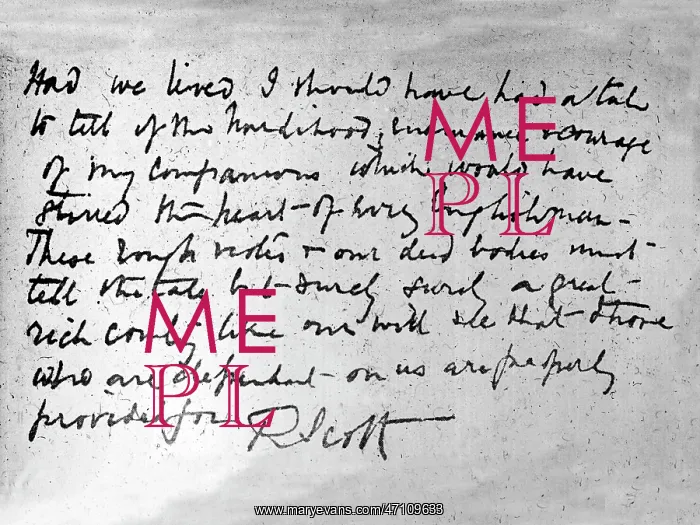 Had we lived I should have had a tale
to tell of the hardihood, endurance & courage
of my companions which would have
stirred the heart of every Englishman
These rough notes & our dead bodies must
tell the tale but surely surely a great
rich country like ours will see that those
who are dependent on us are properly
provided for R Scott
ME
PL
ME
PL
www.maryevans.com/47109633